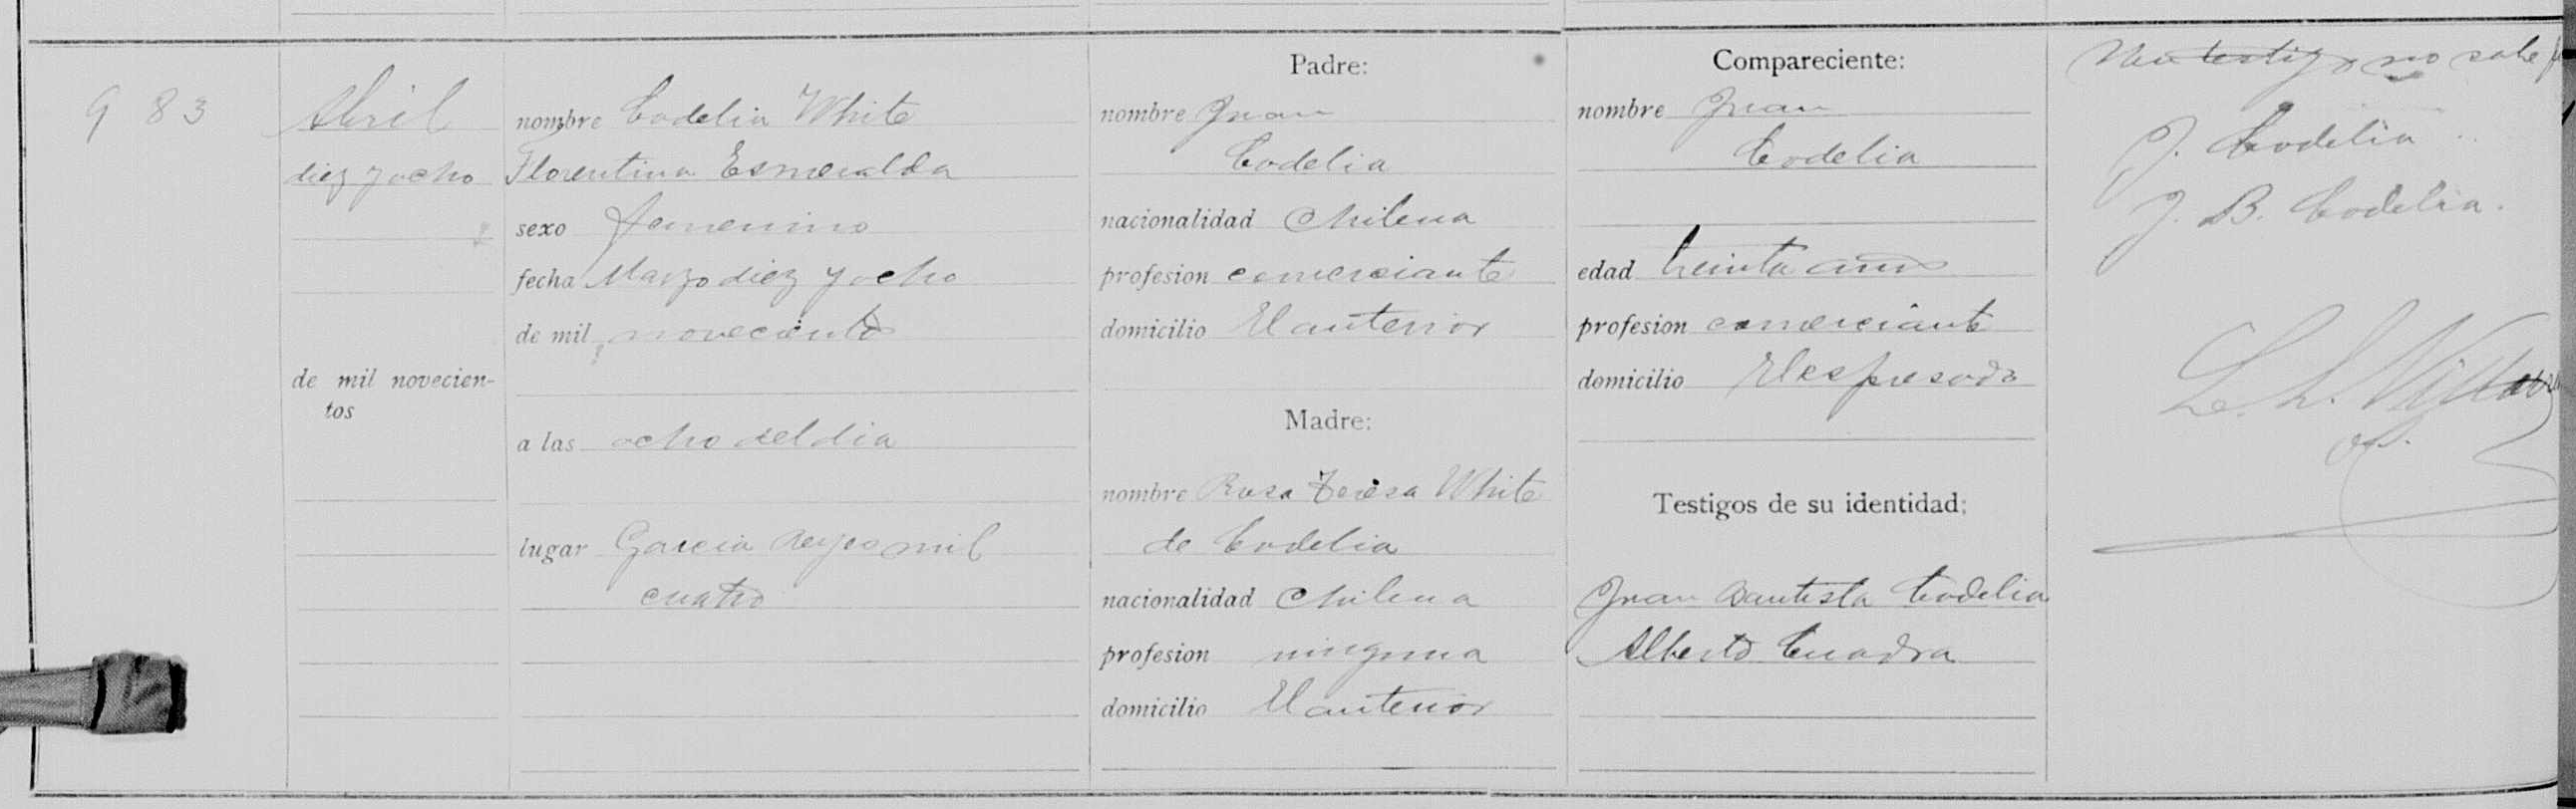 983
Abril
diez y ocho
de mil novecien-
tos
nombre Codelia White
Florentina Esmeralda
sexo femenino
fecha Marzo diez y ocho
de mil novecientos
a las ocho del dia
lugar Garcia Reyes mil
cuatro
Padre:
nombre Juan
Codelia
nacionalidad Chilena
profesion comerciante
domicilio El anterior
Madre:
nombre Rosa Teresa White
de Codelia
nacionalidad Chilena
profesion ninguna
domicilio El anterior
Compareciente:
nombre Juan
Codelia
edad treinta años
profesion comerciante
domicilio El espresado
Testigos de su identidad:
Juan Bautista Codelia
Alberto Cuadra
testigo no sabe
J. Codelia
J. B. Codelia.